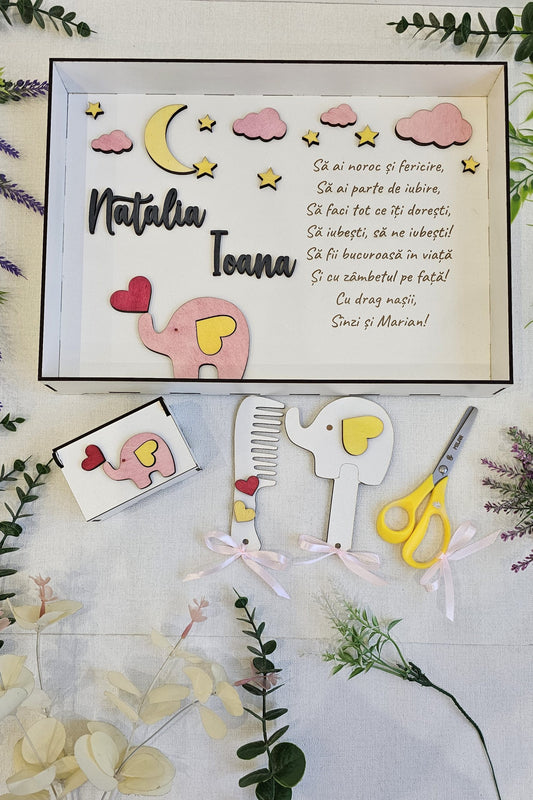 Natalia
Ioana
Să ai noroc și fericire,
Să ai parte de iubire,
Să faci tot ce îți dorești,
Să iubești, să ne iubești!
Să fii bucuroasă în viață
Și cu zâmbetul pe față!
Cu drag nașii,
Sînzi și Marian!